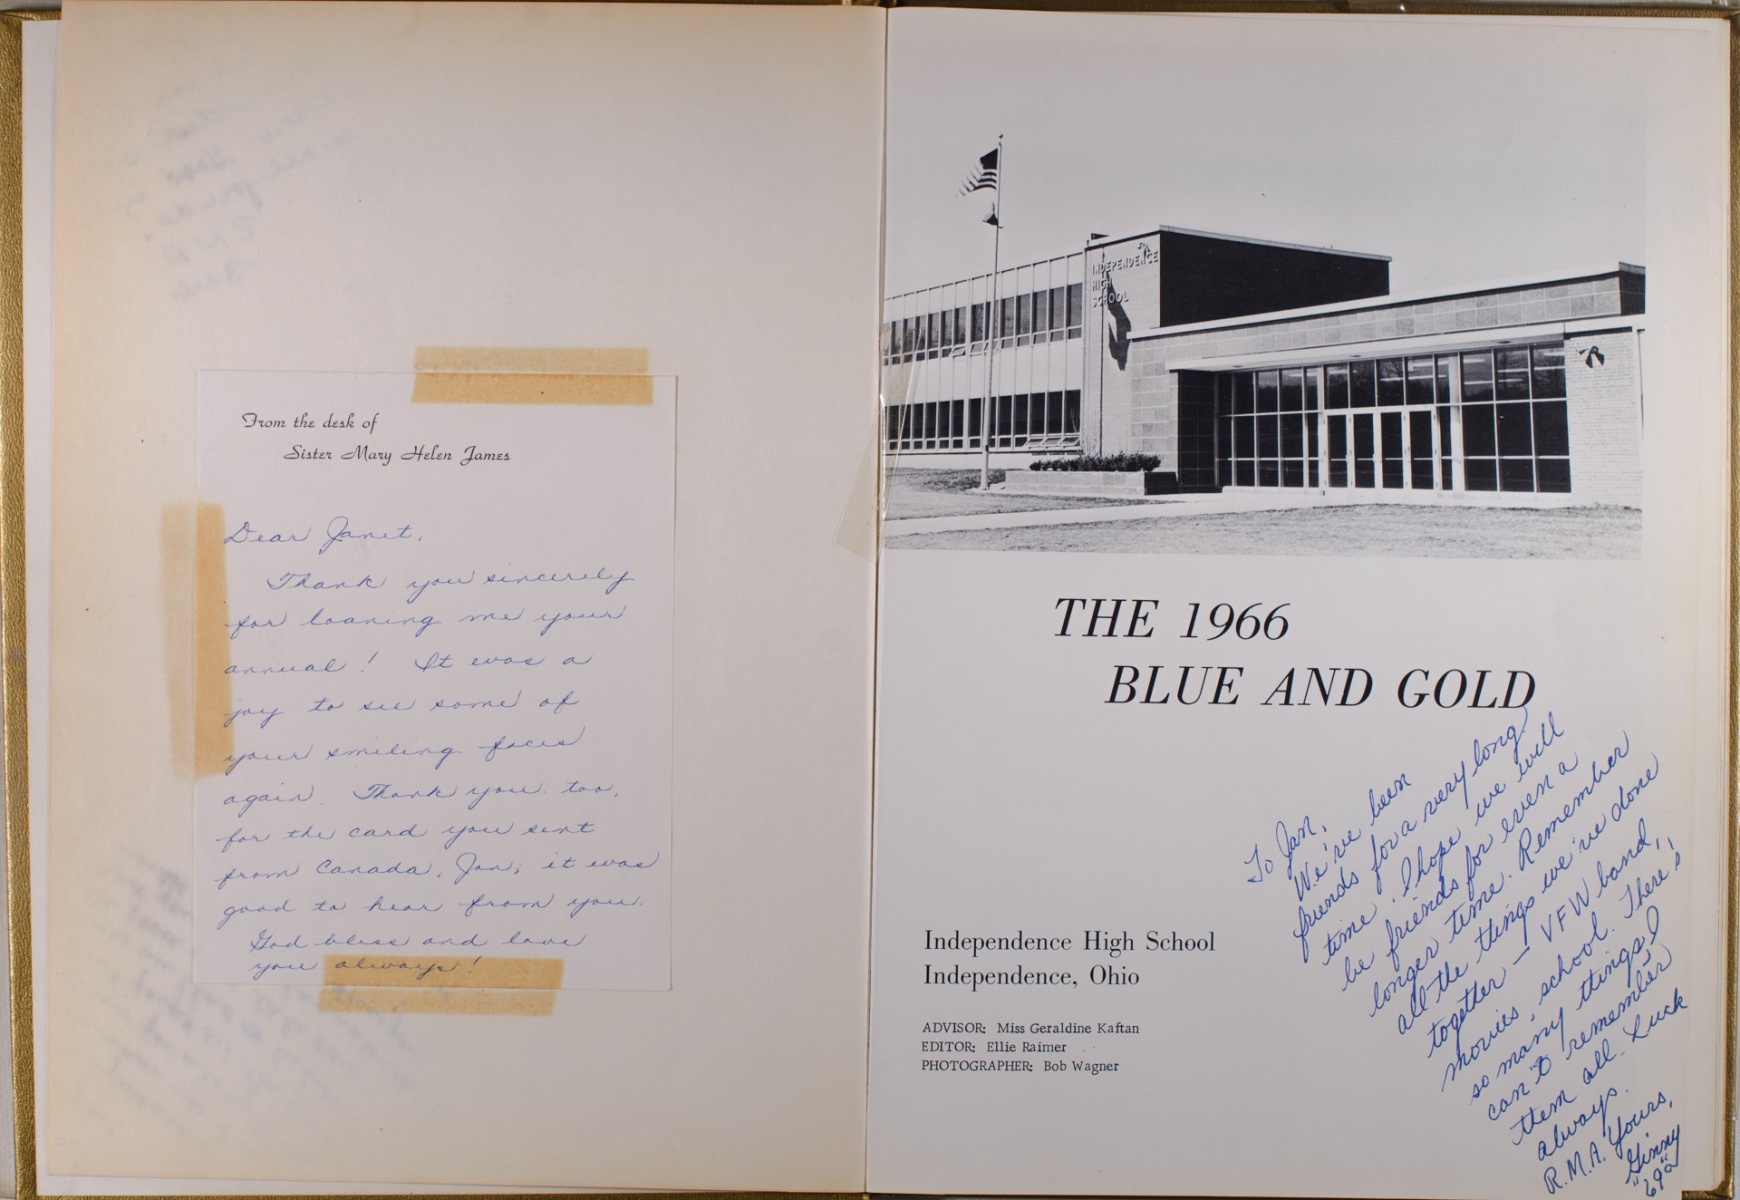 From the desk of
Sister Mary Helen James
Dear Janet,
Thank you sincerely
for loaning me your
annual! It was a
joy to see some of
your smiling faces
again. Thank you, too,
for the card you sent
from Canada, Jan; it was
good to hear from you.
God bless and love
you always!
INDEPENDENCE
HIGH
SCHOOL
THE 1966
BLUE AND GOLD
To Jan,
We've been
friends for a very long
time. I hope we will
be friends for even a
longer time. Remember
all the things we've done
together – VFW band,
movies, school. There's
so many things I
can't remember
them all. Luck
always.
R.M.A. Yours,
"Ginny"
Independence High School
Independence, Ohio
ADVISOR: Miss Geraldine Kaftan
EDITOR: Ellie Raimer
PHOTOGRAPHER: Bob Wagner